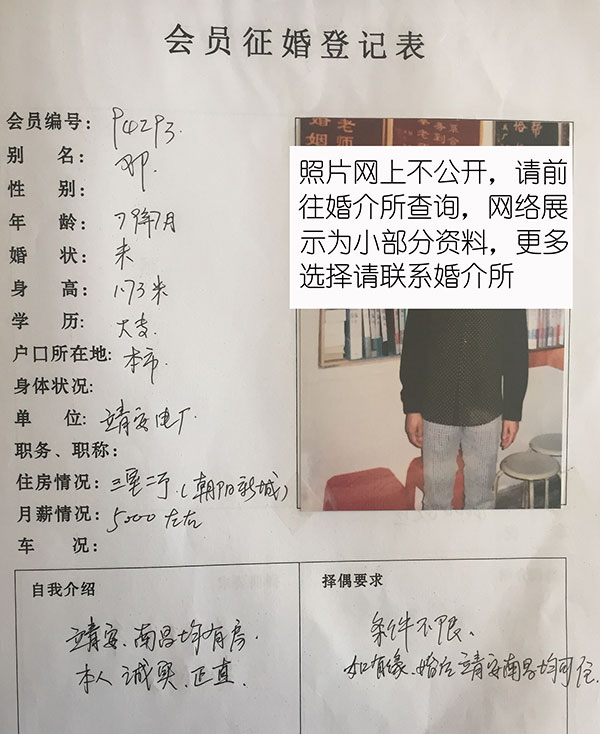 会员征婚登记表
会员编号: P4293.
别 名: 邓.
性 别:
年 龄: 79年7月
婚 状: 未
身 高: 1.73米
学 历: 大专.
户口所在地: 本市.
身体状况:
单 位: 靖安电厂.
职务、职称:
住房情况: 三室二厅.(朝阳新城)
月薪情况: 5000左右
车 况:
婚姻
老师
照片网上不公开，请前
往婚介所查询，网络展
示为小部分资料，更多
选择请联系婚介所
自我介绍
靖安、南昌均有房.
本人诚实、正直.
择偶要求
条件不限、
如有缘、婚后靖安南昌均可住.